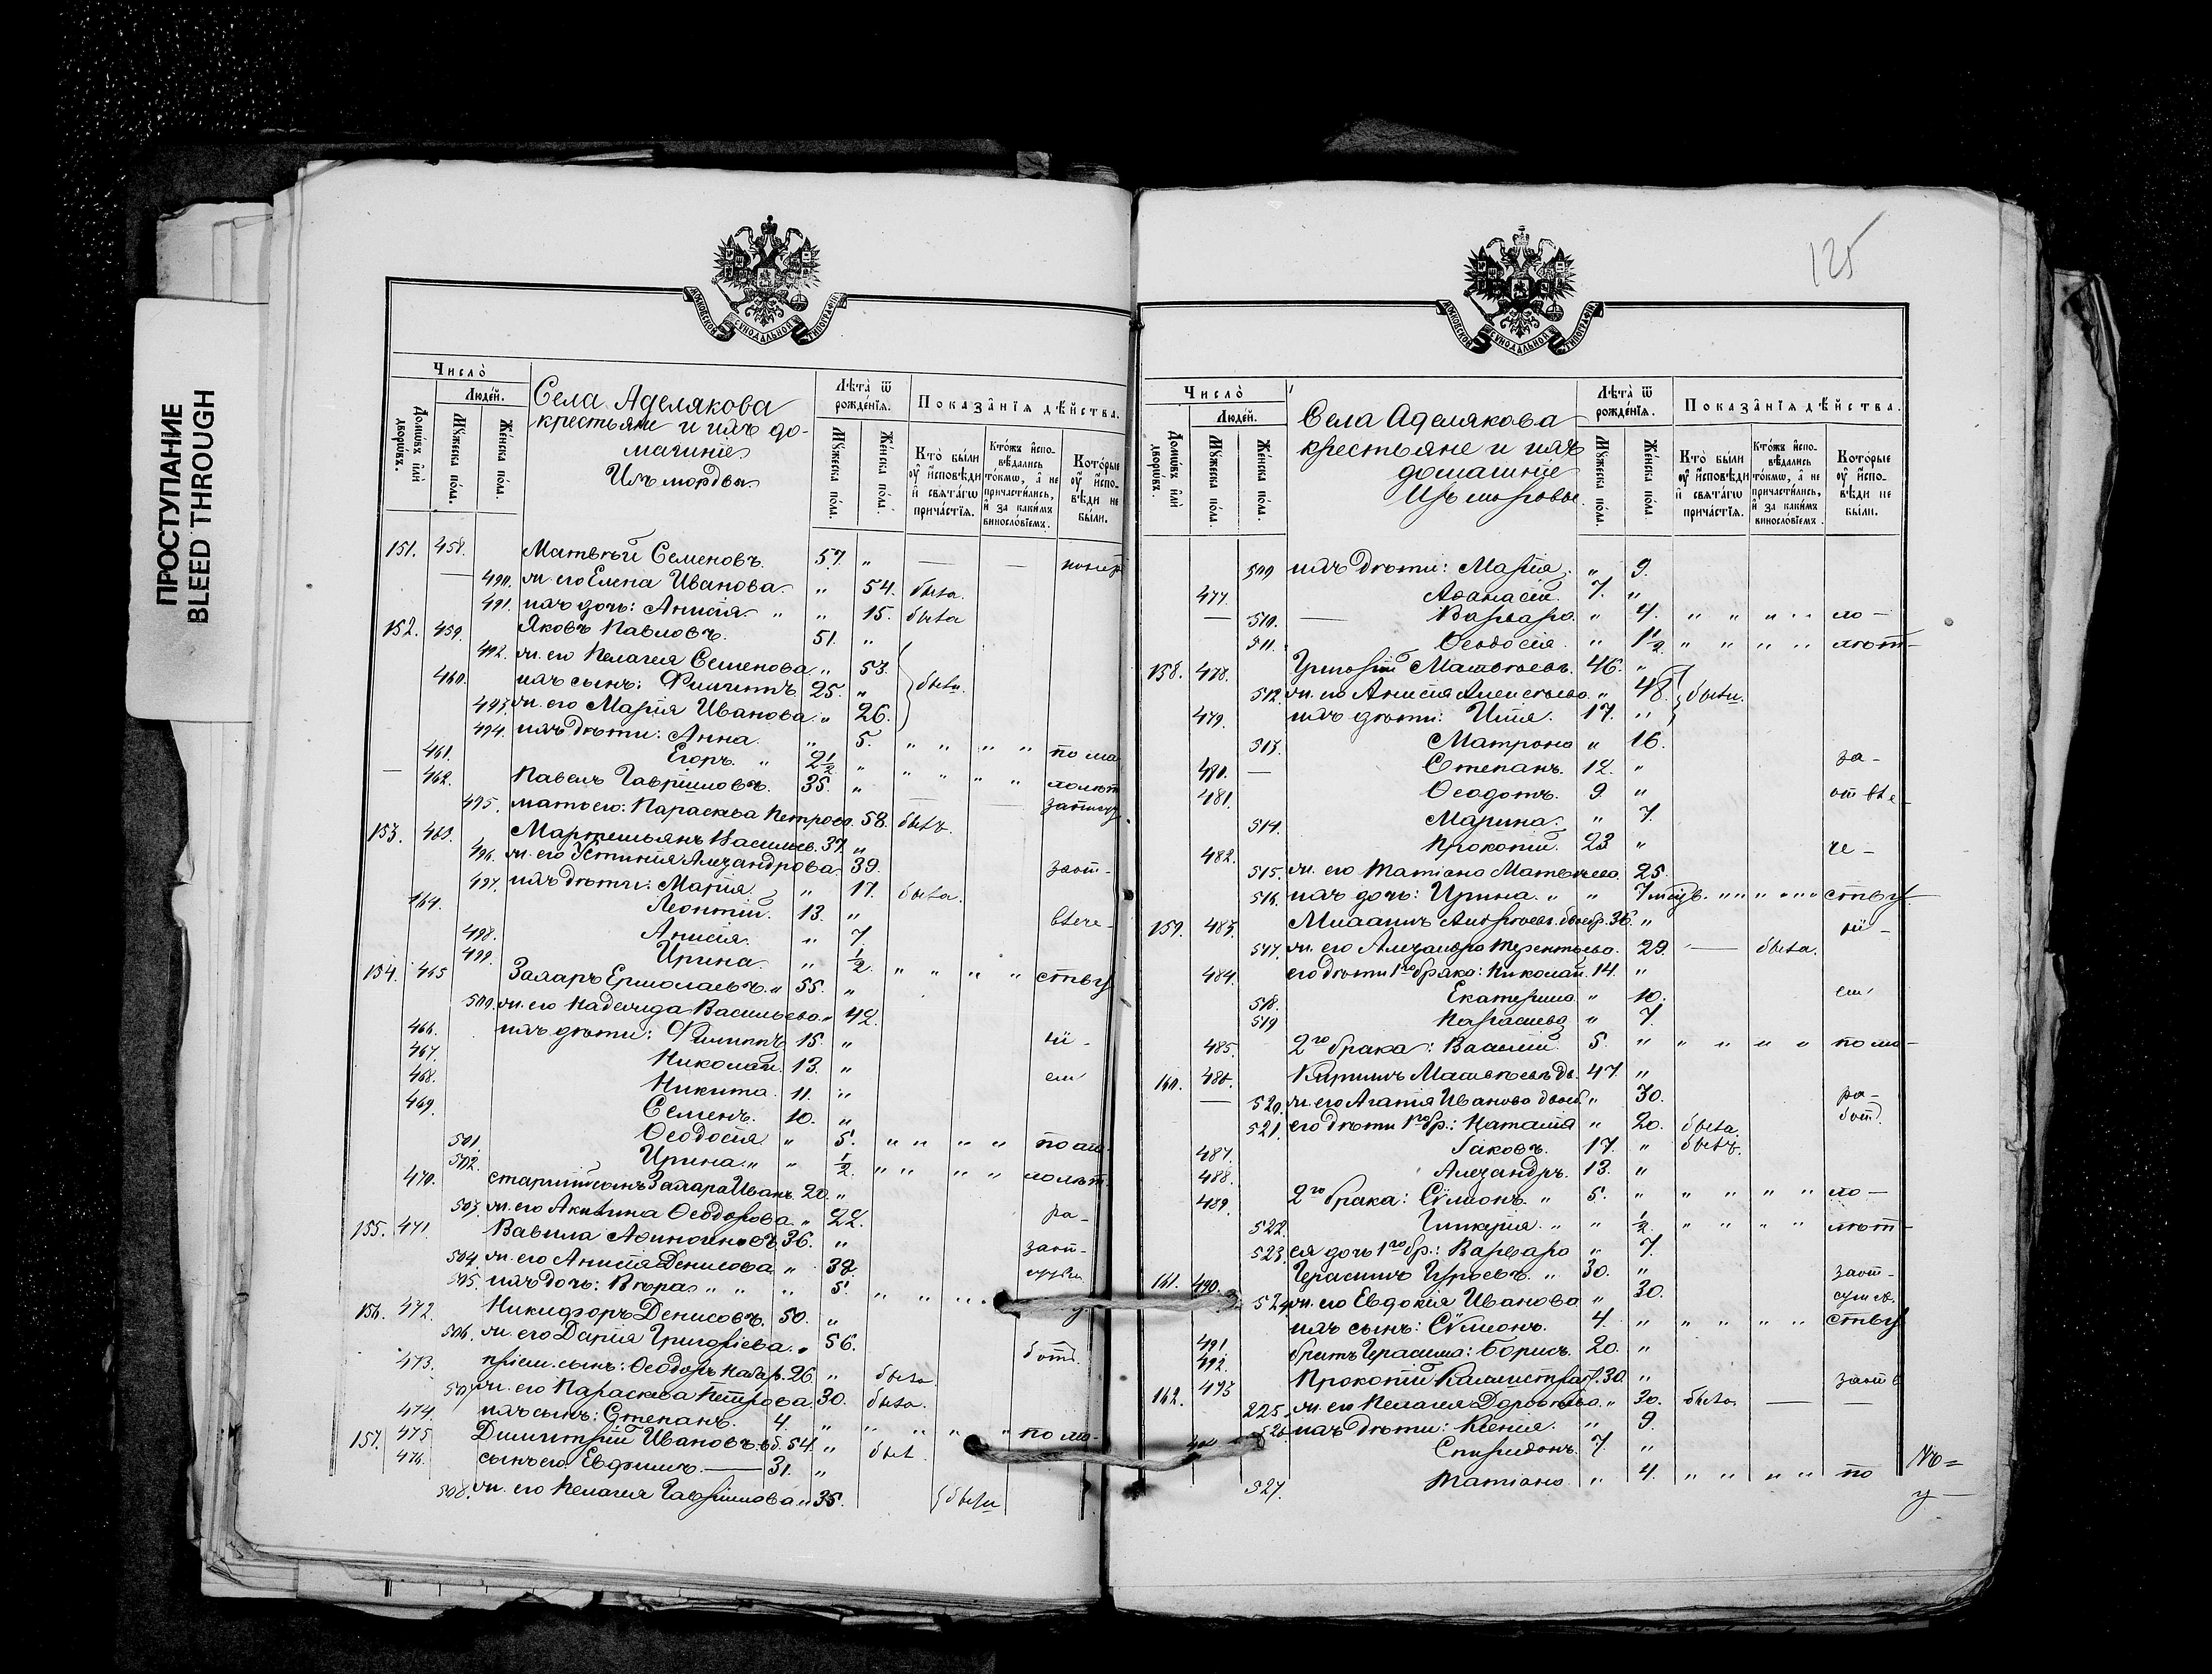 ПРОСТУПАНИЕ
BLEED THROUGH
МОСКОВСКОЙ СѴНОДАЛЬНОЙ ТИПОГРАФІИ
Число̀
Людей.
Домѡвъ или дворѡвъ.
Мꙋжеска пола.
Женска пола.
Села Аделякова
крестьяне и ихъ до-
машніе
Изъ мордвы
Лѣта̀ ѿ рожденїѧ.
Мꙋжеска пола.
Женска пола.
Показанїѧ дѣйства.
Кто̀ были ᲂу҆ и҆сповѣди и҆ свѧтагѡ причастїѧ.
Кто́жъ и҆спо-вѣдались то́кмѡ, а҆ не причастились, и҆ за какимъ винословїемъ.
Которые ᲂу҆ и҆спо-вѣди не были.
151. 458. Матвѣй Семеновъ. 57. " — —
490. ж. его Елена Иванова " 54. была.
491. ихъ дочь: Анисія " " 15. была
152. 459. Яковъ Павловъ. 51. "
492. ж. его Пелагея Семенова " 53.
460. ихъ сынъ: Филиппъ 25. " были.
493. ж. его Марія Иванова " 26.
494. ихъ дѣти: Анна " 5. " " " "
461. Егоръ " 2½ " " " " " по ма
— 462. Павелъ Гавріиловъ. 35. " малѣт
495. мать его: Параскева Петрова. 58. былъ.
153. 463. Мартемьянъ Васильев. 37. "
496. ж. его Устинія Александрова 39. заот-
497. ихъ дѣти: Марія " 17. была.
464. Леонтій. 13. "
498. Анисія. " 7. влече-
499. Ирина. " ½ " " " "
154. 465 Захаръ Ермолаевъ. " 55. " ству
500. ж. его Надежда Васильева " 42.
466. ихъ дѣти: Филиппъ 15. " ні-
467. Николай. 13. "
468. Никита. 11. " ем
469. Семенъ. 10. "
501. Ѳеодосія " 5. " " " " по ма-
502. Ирина " " ½ " " " " лолѣт.
470. старшій сынъ Захара Иванъ 20. "
503. ж. его Акилина Ѳеодорова " 22. ра-
155. 471. Вавила Аѳиногеновъ 36. " заот-
504. ж. его Анисія Денисова " 38.
505. ихъ дочь: Вѣра " " " 5. " " "
156. 472. Никифоръ Денисовъ. 50. "
506. ж. его Дарія Григорьева " 56. бот.
473. пріем. сынъ: Ѳеодоръ Назар. 26 " была.
507 ж. его Параскева Петрова. 30. была.
474. ихъ сынъ: Степанъ. 4. " " " " " по ма-
157. 475 Димитрій Ивановъ вд. 54. " был.
476. сынъ его Евфимъ. — 31. "
508. ж. его Пелагея Гавріилова " 35. были
125
МОСКОВСКОЙ СѴНОДАЛЬНОЙ ТИПОГРАФІИ
Число̀
Людей.
Домѡвъ или дворѡвъ.
Мꙋжеска пола.
Женска пола.
Села Аделякова
крестьяне и ихъ
домашніе
Изъ мордвы.
Лѣта̀ ѿ рожденїѧ.
Мꙋжеска пола.
Женска пола.
Показанїѧ дѣйства.
Кто̀ были ᲂу҆ и҆сповѣди и҆ свѧтагѡ причастїѧ.
Кто́жъ и҆спо-вѣдались то́кмѡ, а҆ не причастились, и҆ за какимъ винословїемъ.
Которые ᲂу҆ и҆спо-вѣди не были.
509 ихъ дѣти: Марія. " 9.
477. Аѳанасій. 7. "
— 510. — Варвара. " 4. " " " " ло—
511. Ѳеодосія. " 1½ " " " " лѣт-
158. 478. Григорій Матвѣевъ. 46. "
512. ж. его Анисія Алексѣева. " 48. были.
479. ихъ дѣти: Илія. 17. "
513. Матрона " 16.
480. — Степанъ. 12. " за-
481. Ѳеодотъ. 9. " от вле-
514. Марина. " 7.
482. Прокопій. 23 " че-
515. ж. его Татіана Матвѣева. 25.
516. ихъ дочь: Ирина. " " 7 мѣс. " " " " ству
159. 483. Михаилъ Андреевъ двоебр. 36. " ні-
517. ж. его Александра Терентьева. 29. — была.
484. его дѣти 1го брака: Николай. 14. "
518. Екатерина " 10. ем
519 Параскева " 7.
485. 2го брака: Василій. 5. " " " " " по ма-
160. 486. Кириллъ Матвѣевъ дв. 47. "
— 520. ж. его Агапія Иванова двоеб. " 30. ра-
521. его дѣти 1го бр.: Наталія " 20. была бот.
487. Іаковъ. 17. " былъ.
488. Александръ. 13. "
489. 2го брака: Сѵмеонъ. " 5. " " " " " ло—
522. Гликерія. " " ½. " " " " лѣт-
523. ея дочь 1го бр.: Варвара " 7.
161. 490. Герасимъ Гуровъ. " 30. " заот-
524. ж. его Евдокія Иванова " 30.
491 ихъ сынъ: Сѵмеонъ. 4. " " " " " ству
492. братъ Герасима: Борисъ. 20. "
162. 493 Прокопій Каллистрат. 30. "
225. ж. его Пелагея Дороѳеева. " 30. была — —
526 ихъ дѣти: Ксенія. " 9.
Спиридонъ. 7. "
527. Татіана. " 4. " " " " по